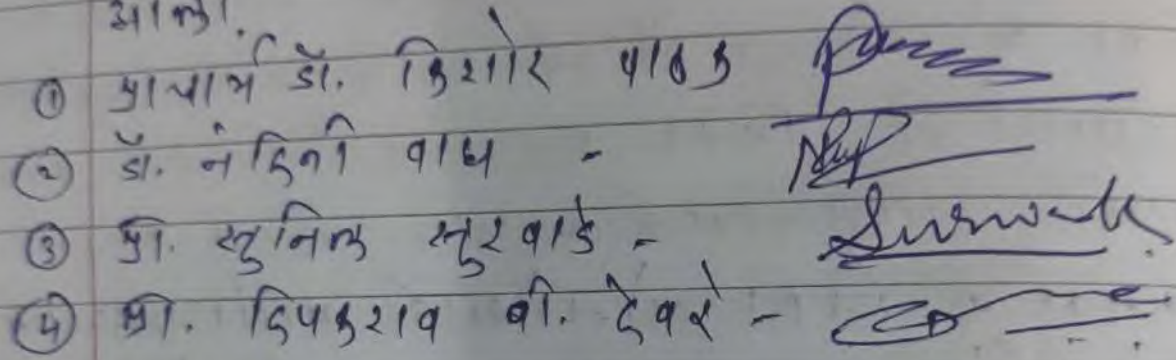 आला.
① प्राचार्य डॉ. किशोर पाठक
② डॉ. नंदिनी वाघ -
③ प्रा. सुनिल सुरवाडे -
④ प्रा. दिपकराव बी. देवरे -